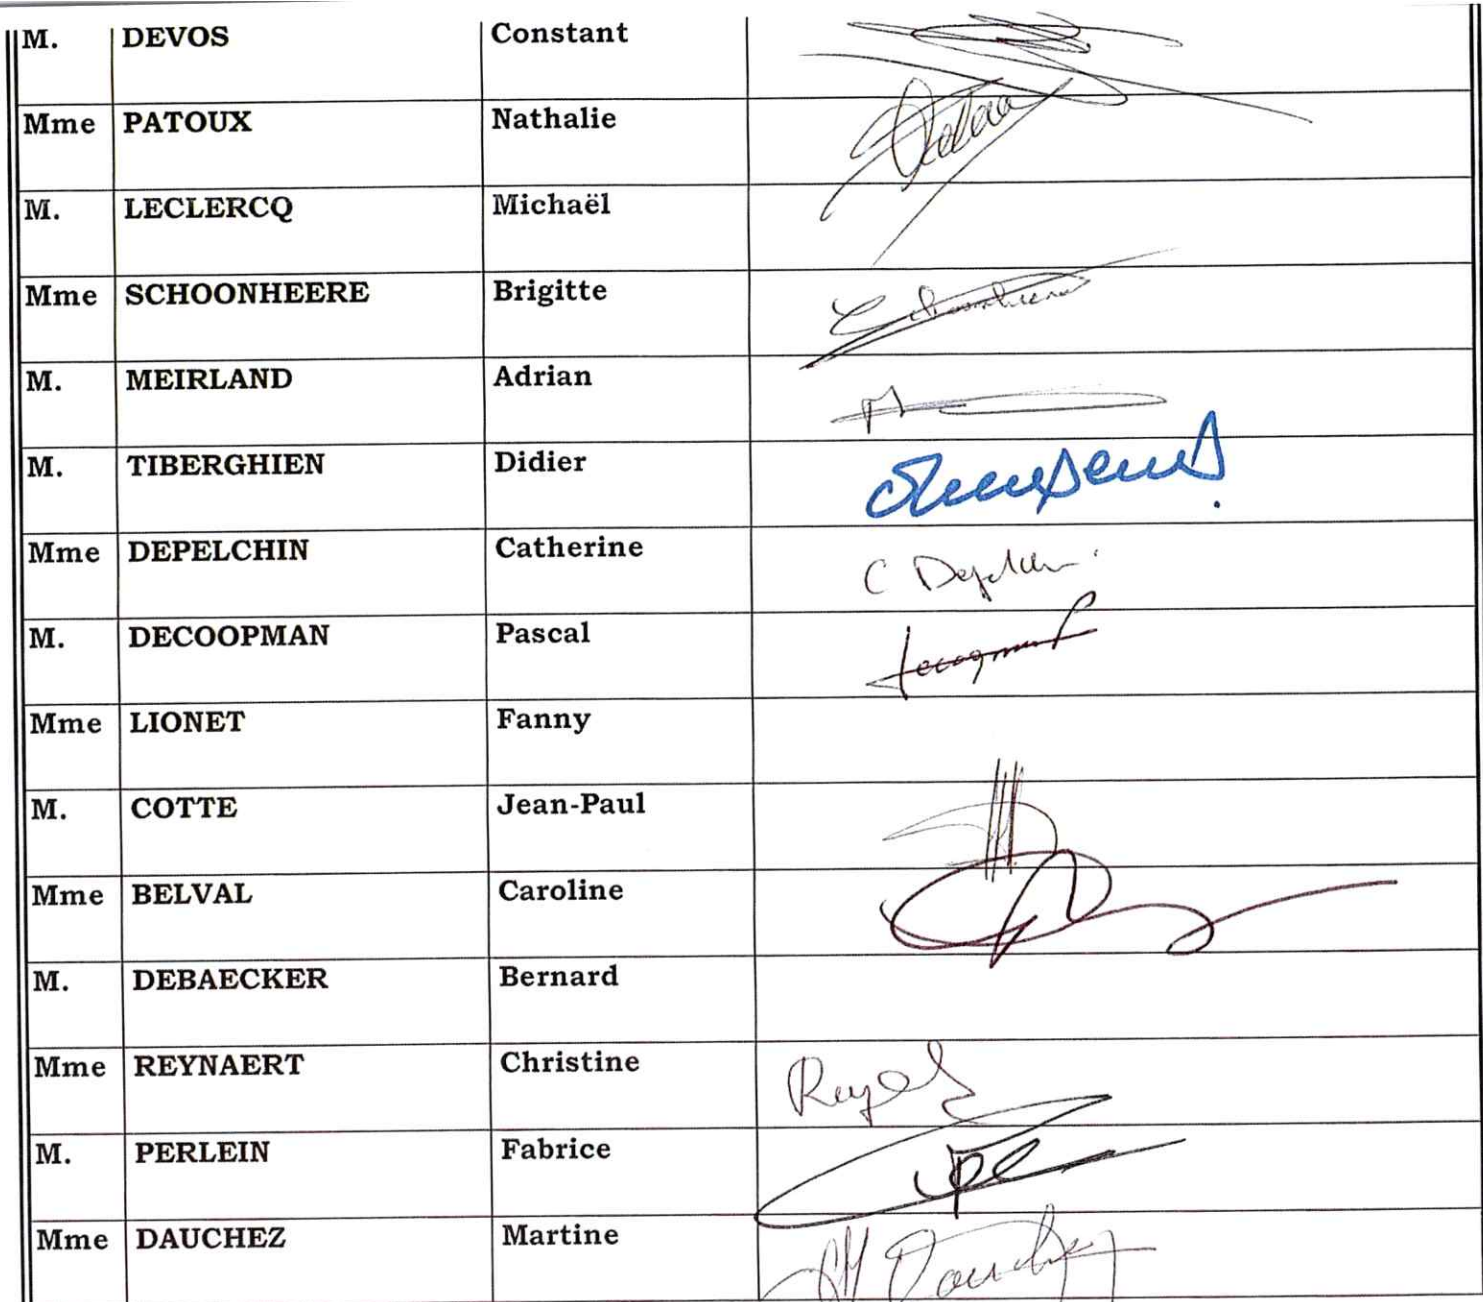 M. DEVOS Constant
Mme PATOUX Nathalie
M. LECLERCQ Michaël
Mme SCHOONHEERE Brigitte
M. MEIRLAND Adrian
M. TIBERGHIEN Didier
Mme DEPELCHIN Catherine
C Depelchin
M. DECOOPMAN Pascal
Mme LIONET Fanny
M. COTTE Jean-Paul
Mme BELVAL Caroline
M. DEBAECKER Bernard
Mme REYNAERT Christine
M. PERLEIN Fabrice
Mme DAUCHEZ Martine
M Dauchez